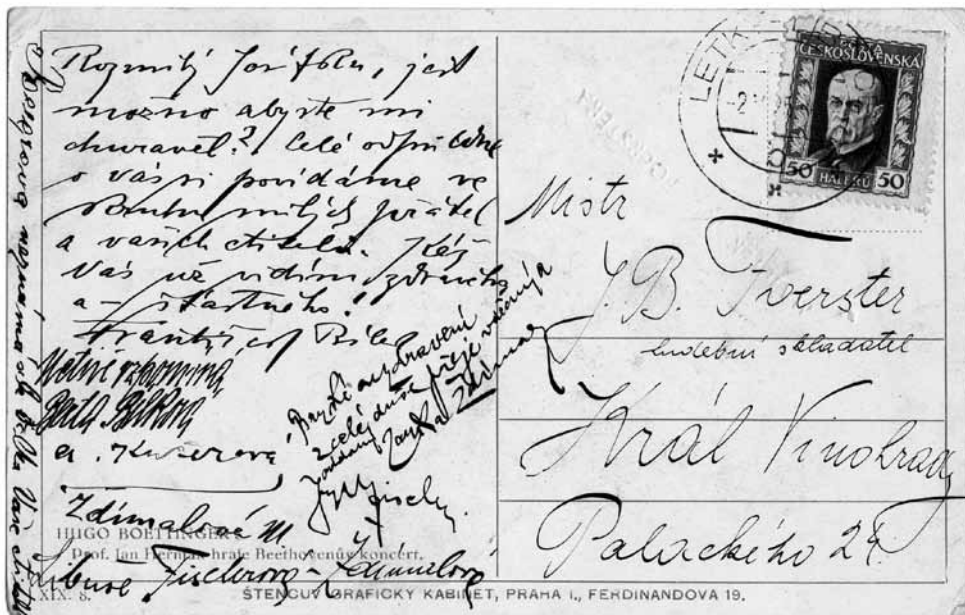 Rozmilý Josífku, jest
možno abyste mi
churavěl? Celé odpoledne
o vás si povídáme ve
kruhu milých přátel
a vašich ctitelů. Kéž
Vás už vidíme zdravého
a – šťastného!
František Bílek
Uctivě vzpomíná
Berta Bílková
a. Kučerová
Brzké uzdravení
z celé duše přeje vděčný
oddaný
Zdímalové M
Libuše Fischerova-Zdímalová
HUGO BOETTINGER
Prof. Jan Heřman hraje Beethovenův koncert.
XIX. 8.
ŠTENCŮV GRAFICKÝ KABINET, PRAHA I., FERDINANDOVA 19.
LETK
POŠTA
ČESKOSLOVENSKÁ
50 HALÉŘŮ 50
Mistr
J. B. Foerster
hudební skladatel
Král Vinohrady
Palackého 24.